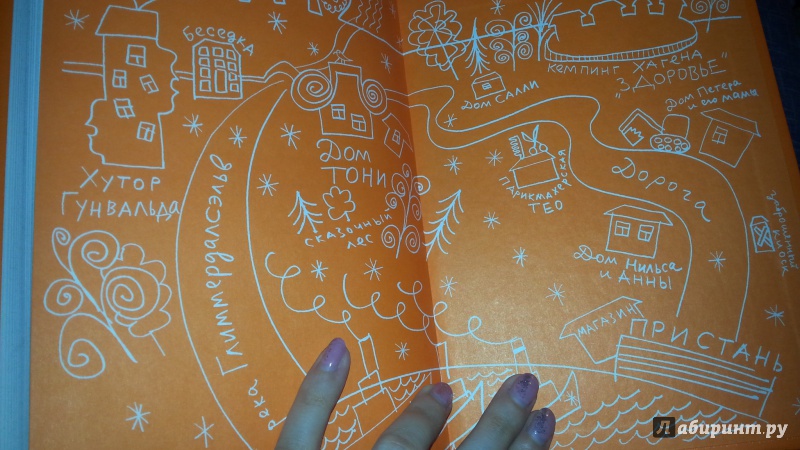 Беседка
Хутор
Гунвальда
Река Глиммердалсэльв
Дом
Тони
Сказочный
лес
Кемпинг Хагена
„Здоровье"
Дом Салли
Дом Петера
и его мамы
Парикмахерская
Тео
Дорога
Дом Нильса
и Анны
Заброшенный
киоск
Магазин
Пристань
Лабиринт.ру